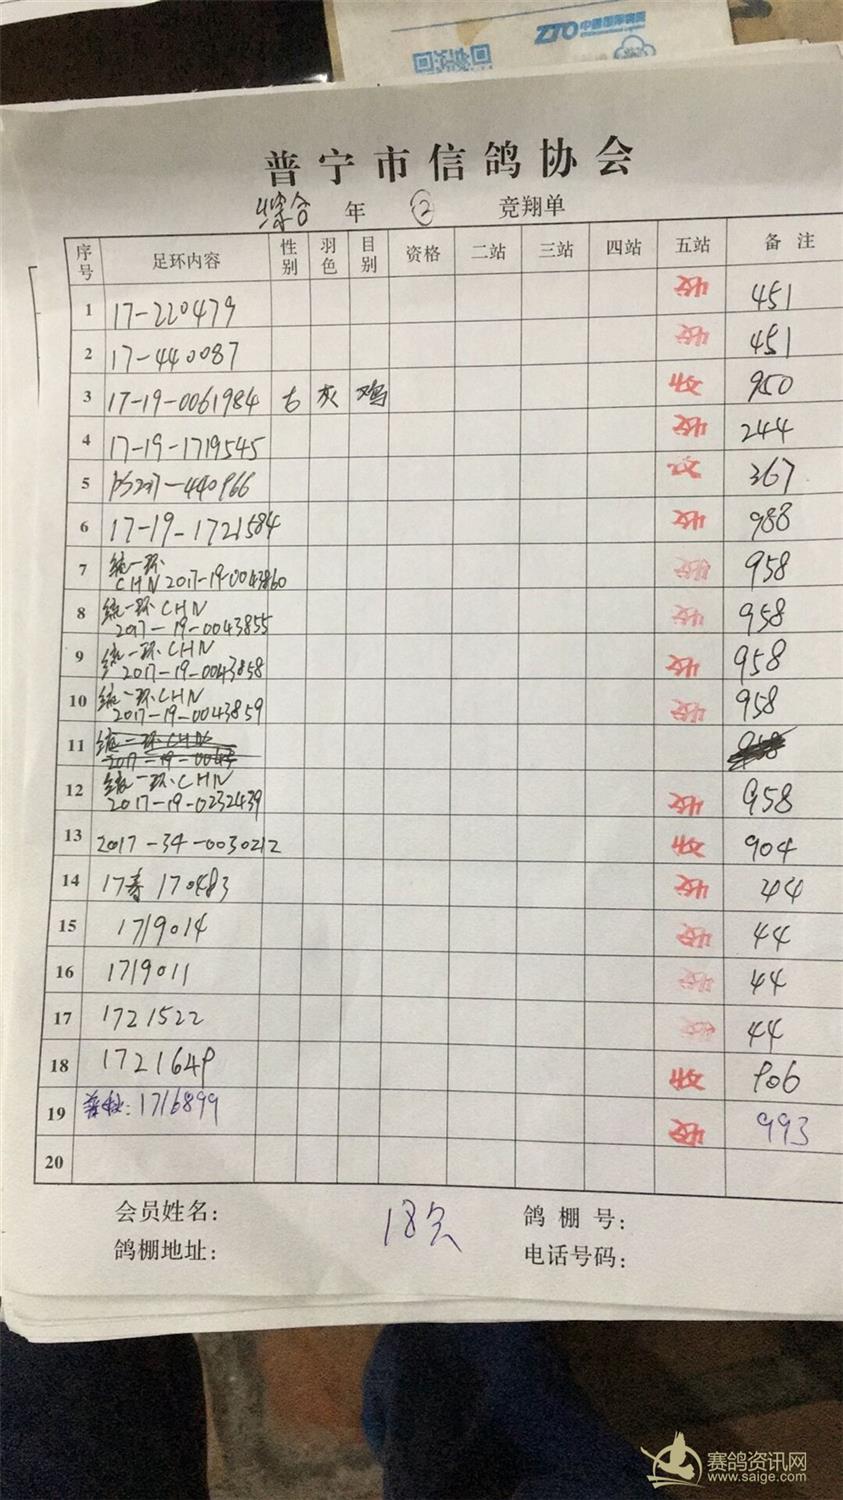 ZTO 中通国际物流
普宁市信鸽协会
综合 年 ② 竞翔单
序号 足环内容 性别 羽色 目别 资格 二站 三站 四站 五站 备注
1 17-220479 收 451
2 17-440087 收 451
3 17-19-0061984 灰 鸡 收 950
4 17-19-1719545 收 244
5 收 367
6 17-19-1721584 收 988
7 统一环 收 958
CHN 2017-19-0043860
8 统一环 CHN 收 958
2017-19-0043855
9 统一环 CHN 收 958
2017-19-0043858
10 统一环 CHN 收 958
2017-19-0043859
11 统一环 CHN 958
2017-19-0043
12 统一环 CHN 收 958
2017-19-0232439
13 2017-34-0030212 收 904
14 17春170483 收 44
15 1719014 收 44
16 1719011 收 44
17 1721522 收 44
18 1721649 收 906
19 1716899 收 993
20
会员姓名： 18 鸽棚号：
鸽棚地址： 电话号码：
赛鸽资讯网
www.saige.com